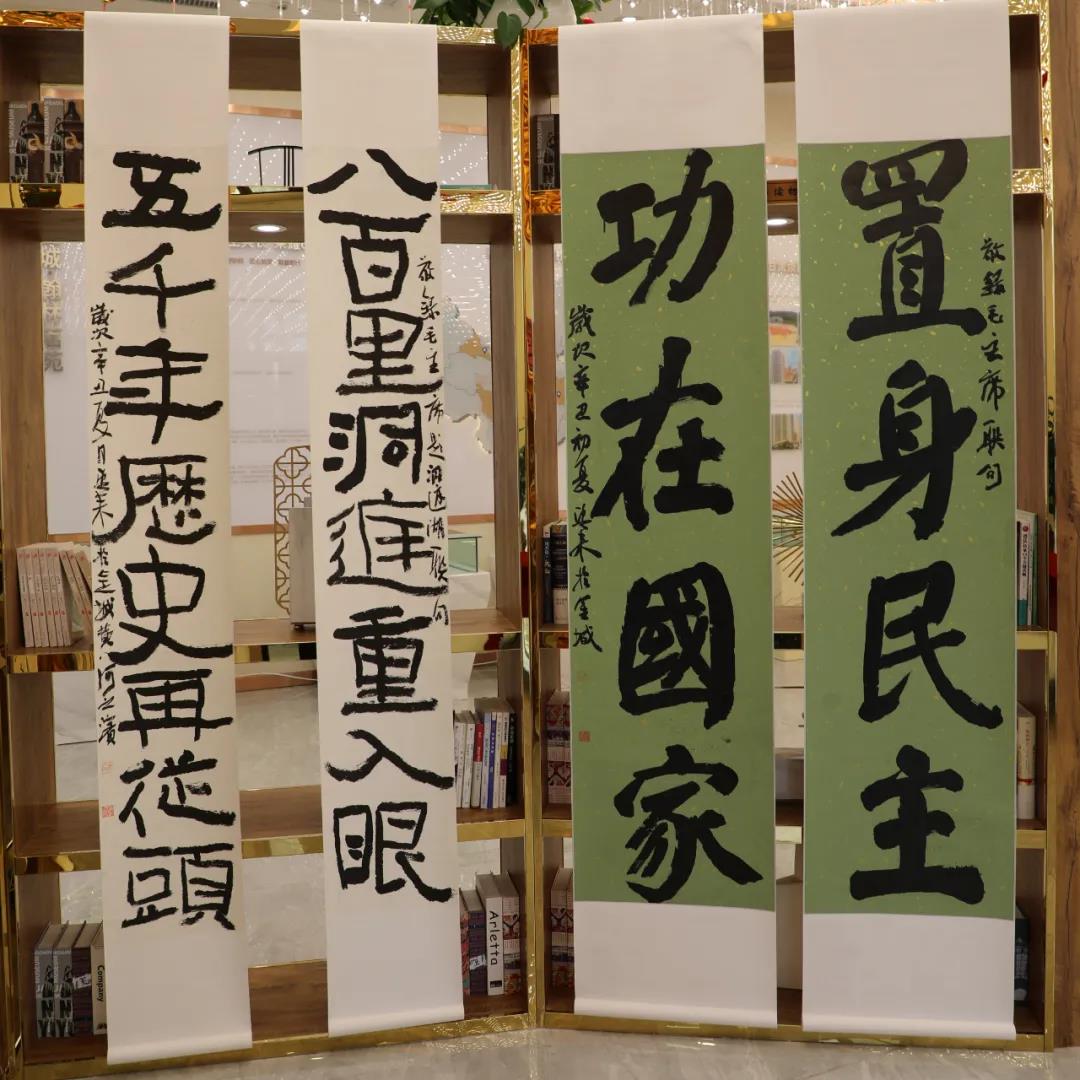 置身民主
敬錄毛主席聯句
功在國家
歲次辛丑初夏 於金城
八百里洞庭重入眼
敬錄毛主席題洞庭湖聯句
五千年歷史再從頭
歲次辛丑夏月 於金城黃河之濱
Arletta
Company